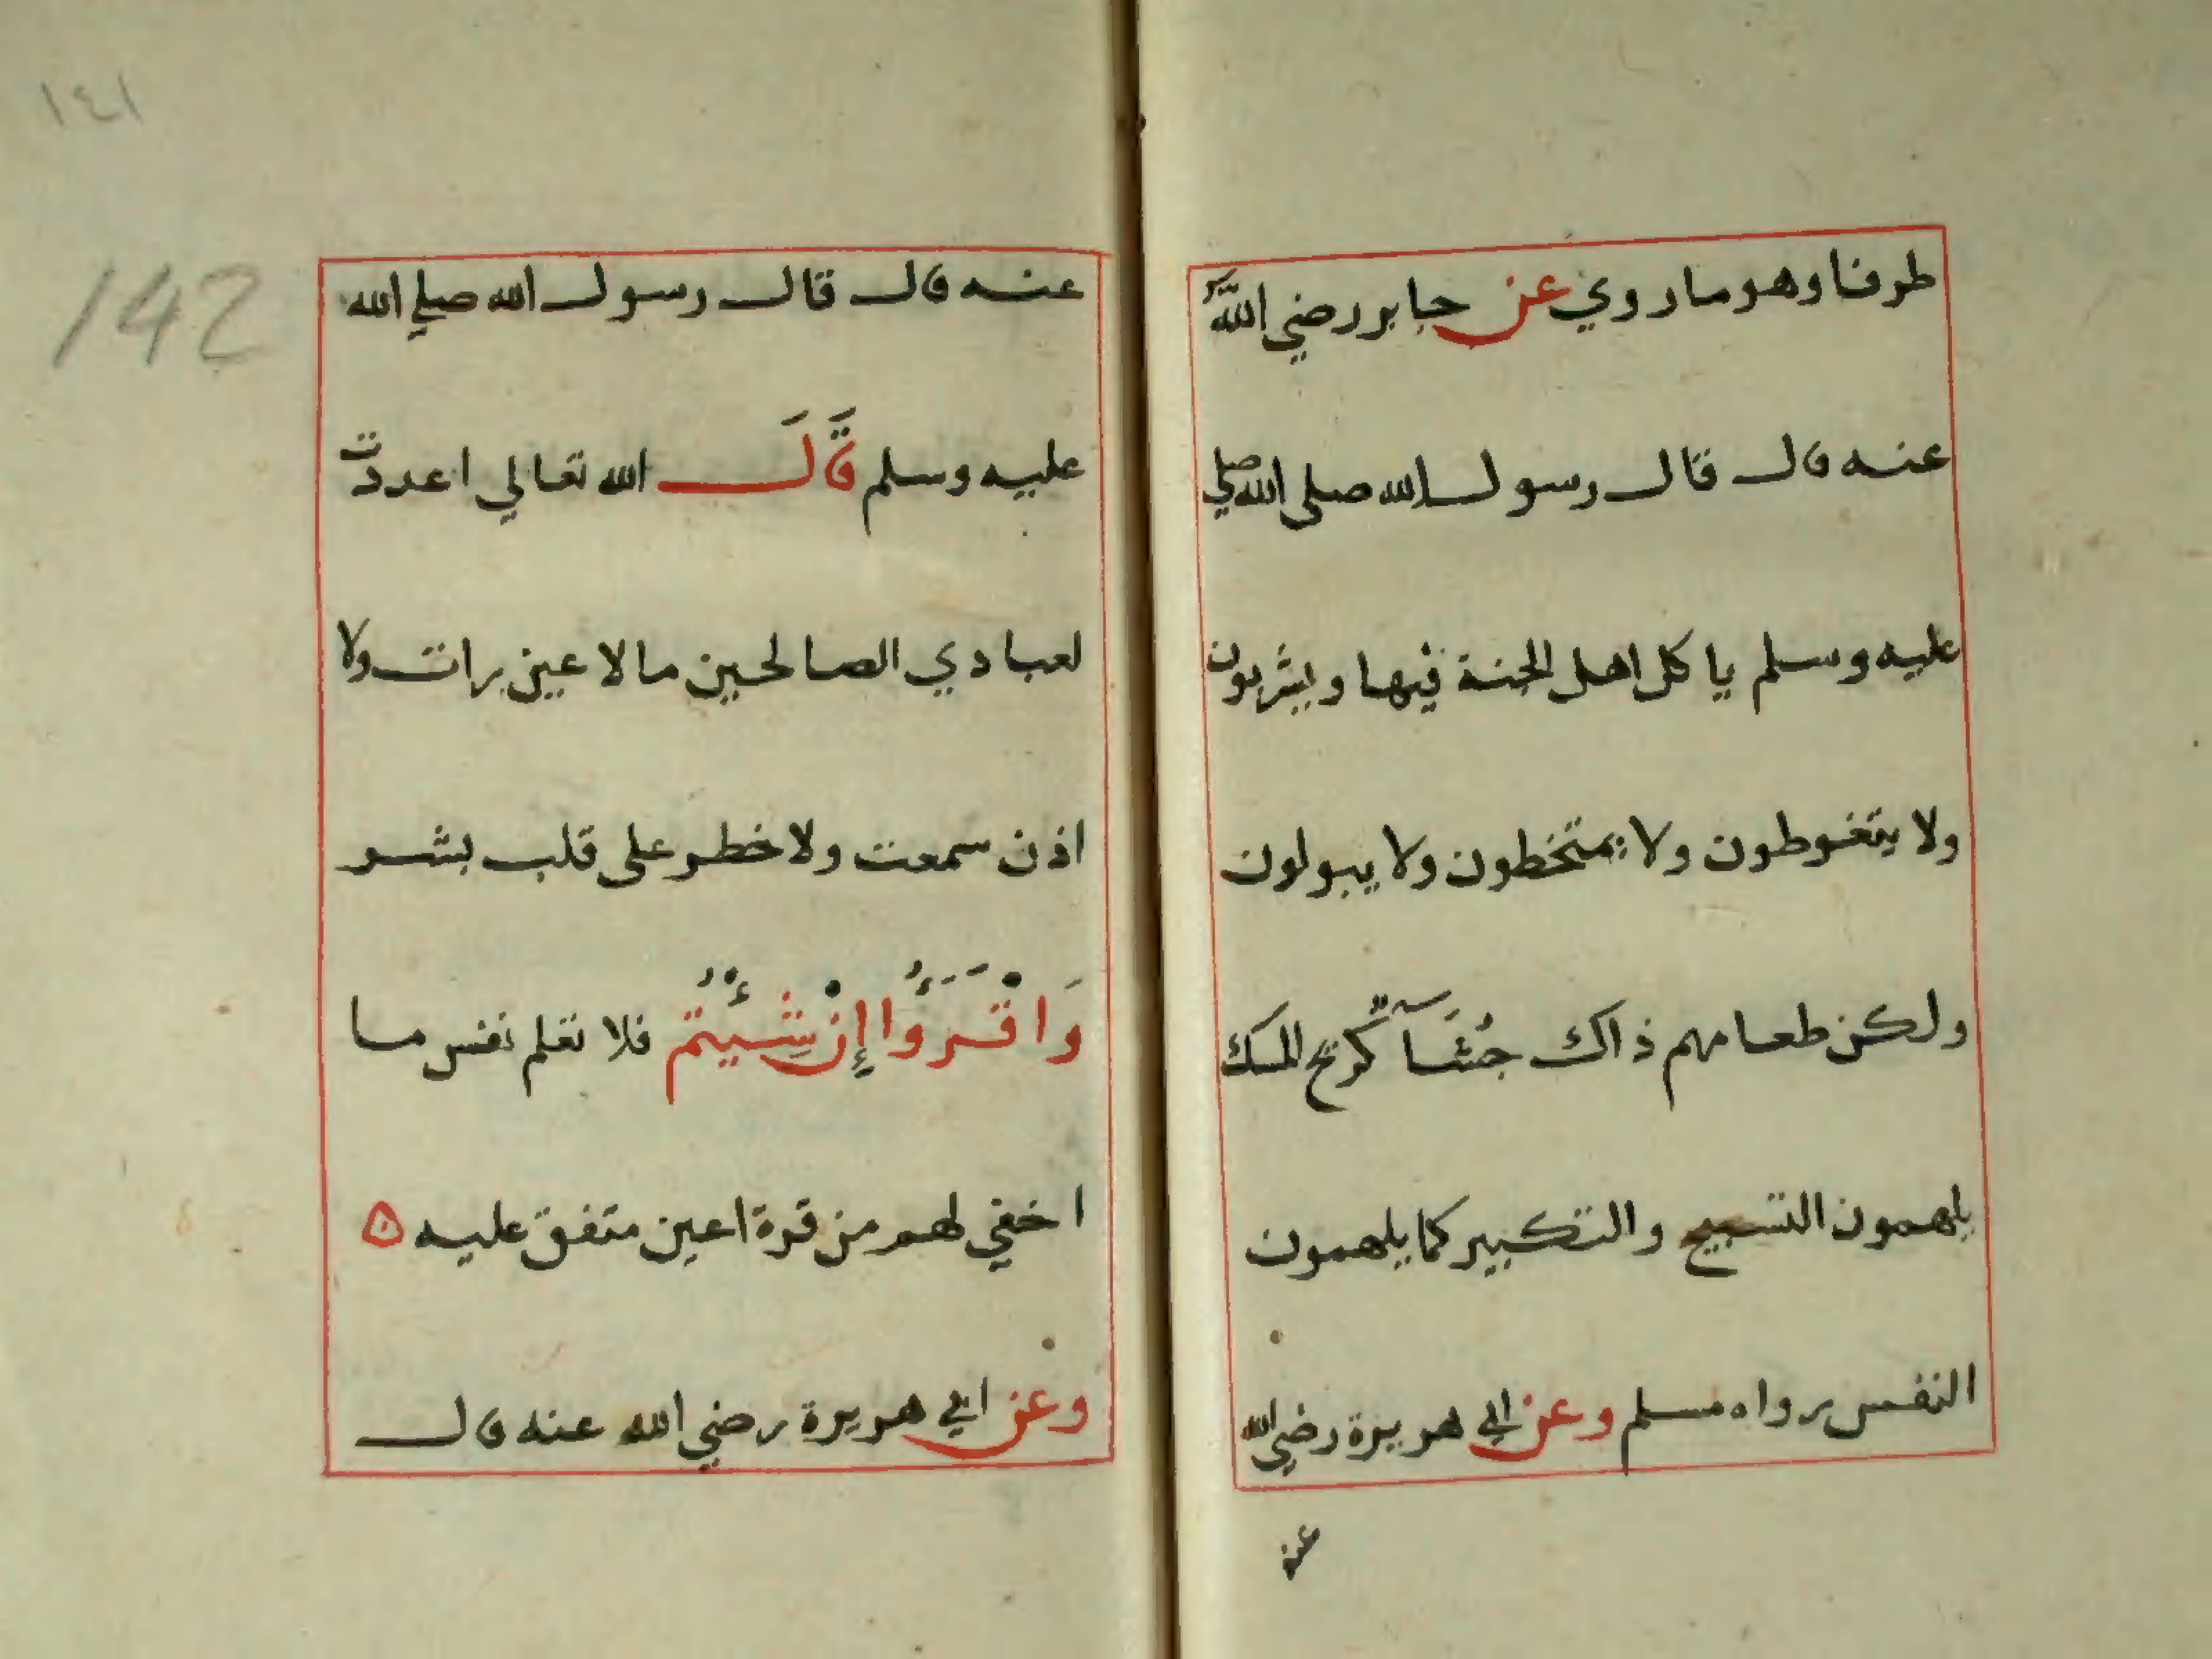 طرفا وهو ما روي عن جابر رضي الله
عنه قال قال رسول الله صلى الله صلي
عليه وسلم ياكل اهل الجنة فيها ويشربون
ولا يتغوطون ولا يمتخطون ولا يبولون
ولكن طعامهم ذاك جُشَآٌ كريح المسك
يلهمون التسبيح والتكبير كما يلهمون
النفس رواه مسلم وعن ابي هريرة رضي الله
عنه
١٤١
142
عنه قال قال رسول الله صلي الله
عليه وسلم قَالَ الله تعالي اعددت
لعبادي الصالحين ما لا عين رات ولا
اذن سمعت ولا خطر على قلب بشر
وَاقْرَءُوا إِنْ شِئْتُم فلا تعلم نفس ما
اخفي لهم من قرة اعين متفق عليه ۵
وعن ابي هريرة رضي الله عنه قال